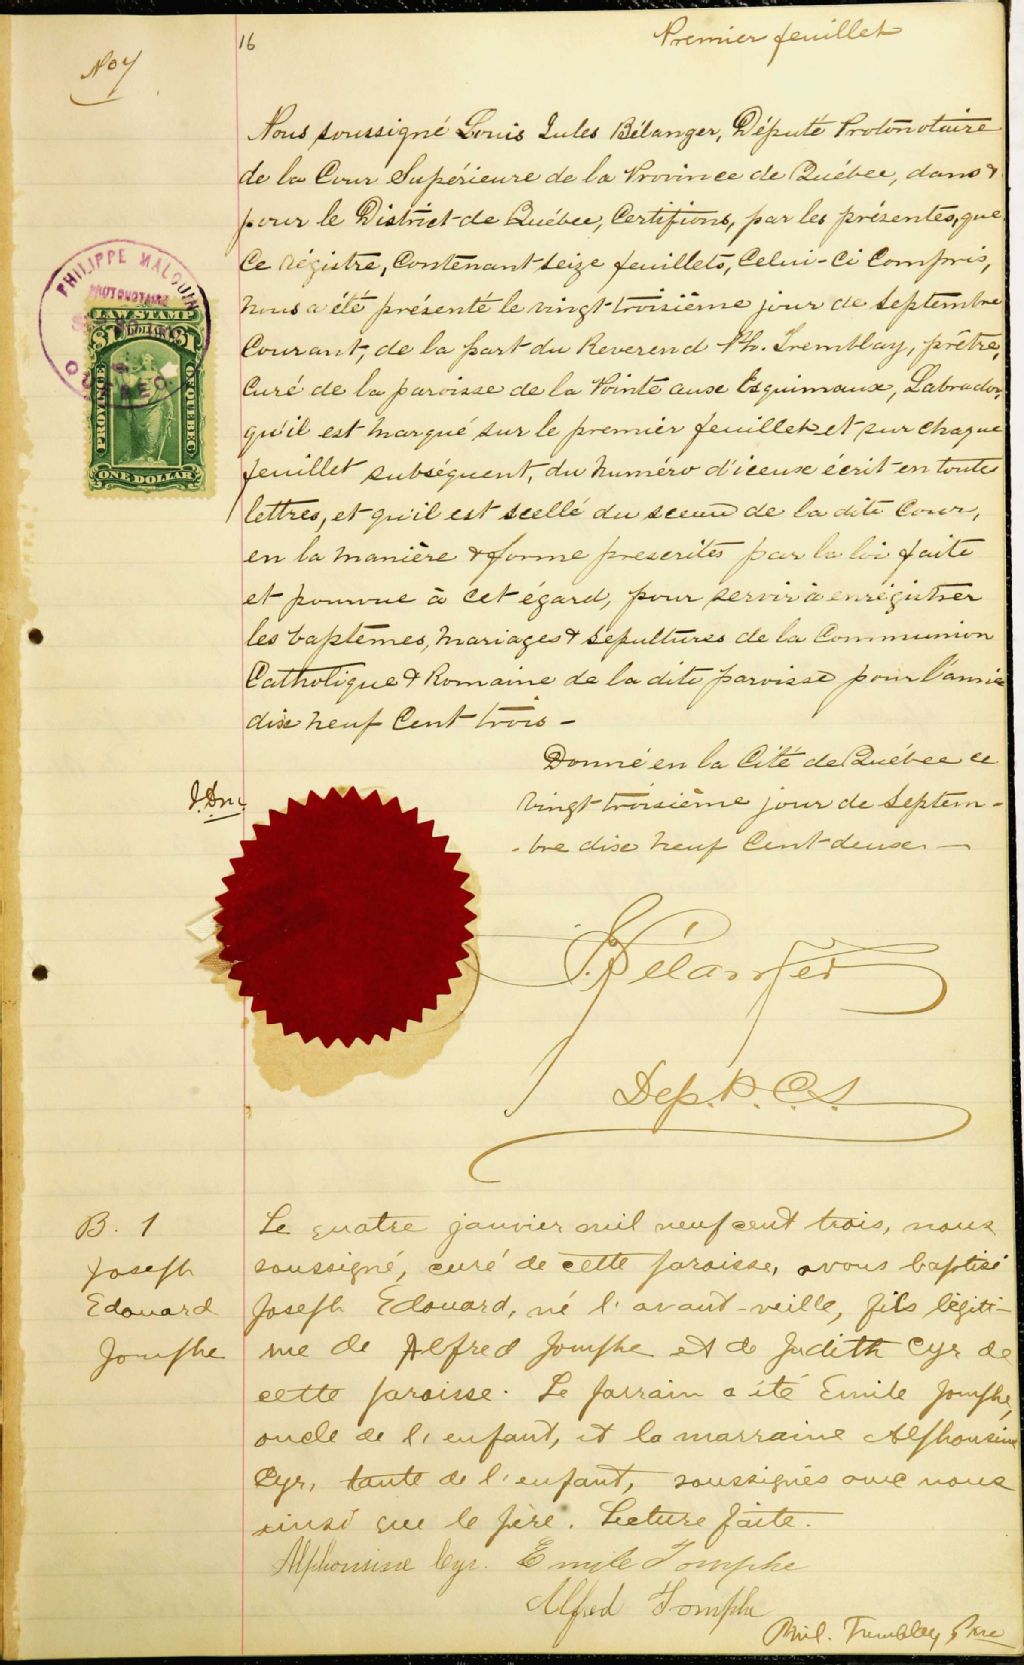 16
Premier feuillet
No 7
Nous soussigné Louis Jules Bélanger, Député Protonotaire
de la Cour Supérieure de la Province de Québec, dans &
pour le District de Québec, Certifions, par les présentes, que
Ce régistre, Contenant seize feuillets, Celui-Ci Compris,
nous a été présenté le vingt-troisième jour de Septembre
Courant, de la part du Reverend Ph. Tremblay, prêtre,
Curé de la paroisse de la Pointe aux Esquimaux, Labrador,
qu'il est marqué sur le premier feuillet et sur chaque
feuillet subséquent, du numéro d'iceux écrit en toutes
lettres, et qu'il est scellé du sceau de la dite Cour,
en la manière & forme prescrites par la loi faite
et pourvue à cet égard, pour servir à enrégistrer
les baptêmes, mariages & sépultures de la Communion
Catholique & Romaine de la dite paroisse pour l'année
dix neuf Cent trois -
Donné en la Cité de Québec ce
vingt-troisième jour de Septem-
-bre dix neuf Cent-deux. —
PHILIPPE MALOUIN
PROTONOTAIRE
QUEBEC
LAW STAMP
$1 DOLLAR $1
PROVINCE OF QUEBEC
ONE DOLLAR
Bélanger
Dep. P. C. S.
B. 1
Joseph
Edouard
Jomphe
Le quatre janvier mil neuf cent trois, nous
soussigné, curé de cette paroisse, avons baptisé
Joseph Edouard, né l'avant-veille, fils légiti-
me de Alfred Jomphe et de Judith Cyr de
cette paroisse. Le parrain a été Emile Jomphe,
oncle de l'enfant, et la marraine Alphonsine
Cyr, tante de l'enfant, soussignés avec nous
ainsi que le père. Lecture faite.
Alphonsine Cyr. Emile Jomphe
Alfred Jomphe
Phil. Tremblay Ptre